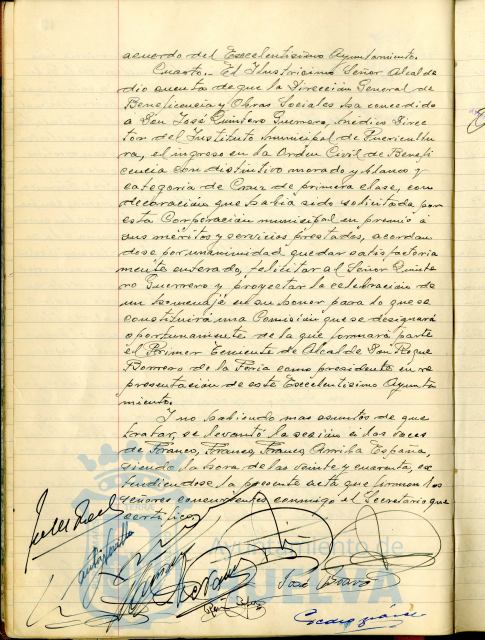 acuerdo del Excelentisimo Ayuntamiento.
Cuarto.- El Ilustrisimo Señor Alcalde
dio cuenta de que la Dirección General de
Beneficencia y Obras Sociales ha concedido
a Don José Quintero Guerrero, Médico Direc
tor del Instituto Municipal de Puericultu
ra, el ingreso en la Orden Civil de Benefi
cencia con distintivo morado y blanco y
categoria de Cruz de primera clase, con
decoración que habia sido solicitada por
esta Corporación municipal en premio a
sus méritos y servicios prestados, acordan
dose por unanimidad quedar satisfactoria
mente enterado, felicitar al Señor Quinte
ro Guerrero y proyectar la celebración de
un homenaje en su honor para lo que se
constituirá una Comisión que se designará
oportunamente de la que formará parte
el Primer Teniente de Alcalde Don Roque
Borrero de la Feria como presidente en re
presentación de este Excelentisimo Ayunta
miento.
Y no habiendo mas asuntos de que
tratar, se levantó la sesión a las voces
de Franco, Franco, Franco, Arriba España,
siendo la hora de las veinte y cuarenta, ex
tendiendose la presente acta que firman los
señores concurrentes conmigo el Secretario que
certifico.
José
Ayuntamiento de
HUELVA